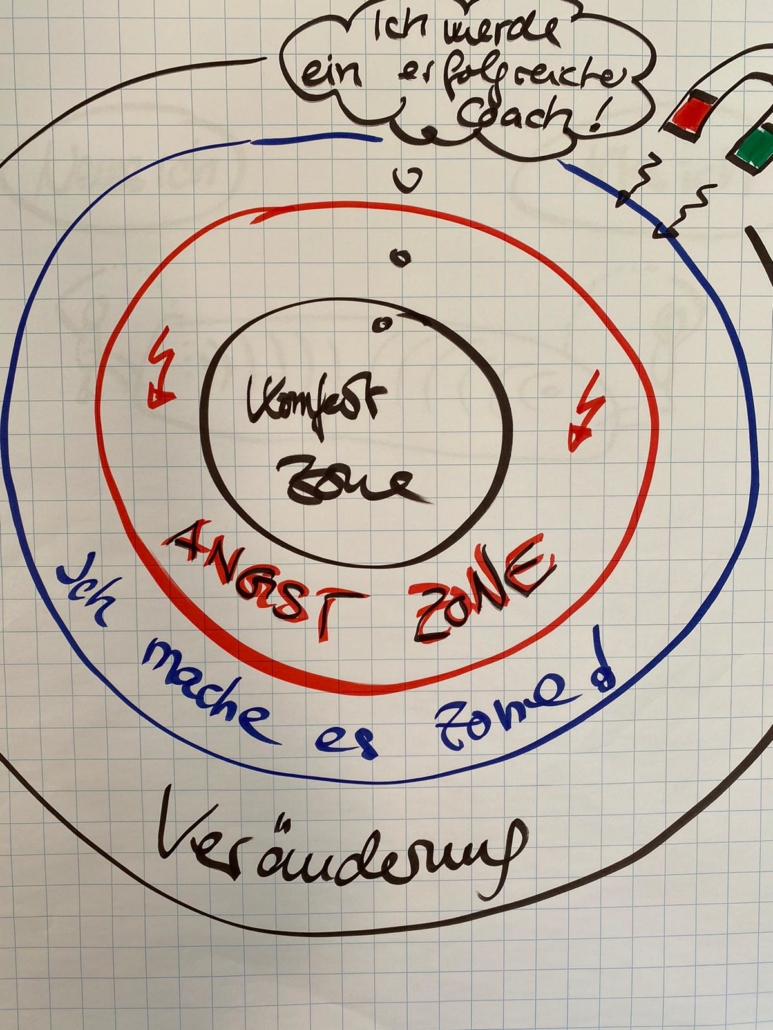 Ich werde
ein erfolgreicher
Coach!
Komfort
Zone
ANGST ZONE
Ich mache es Zone!
Veränderung